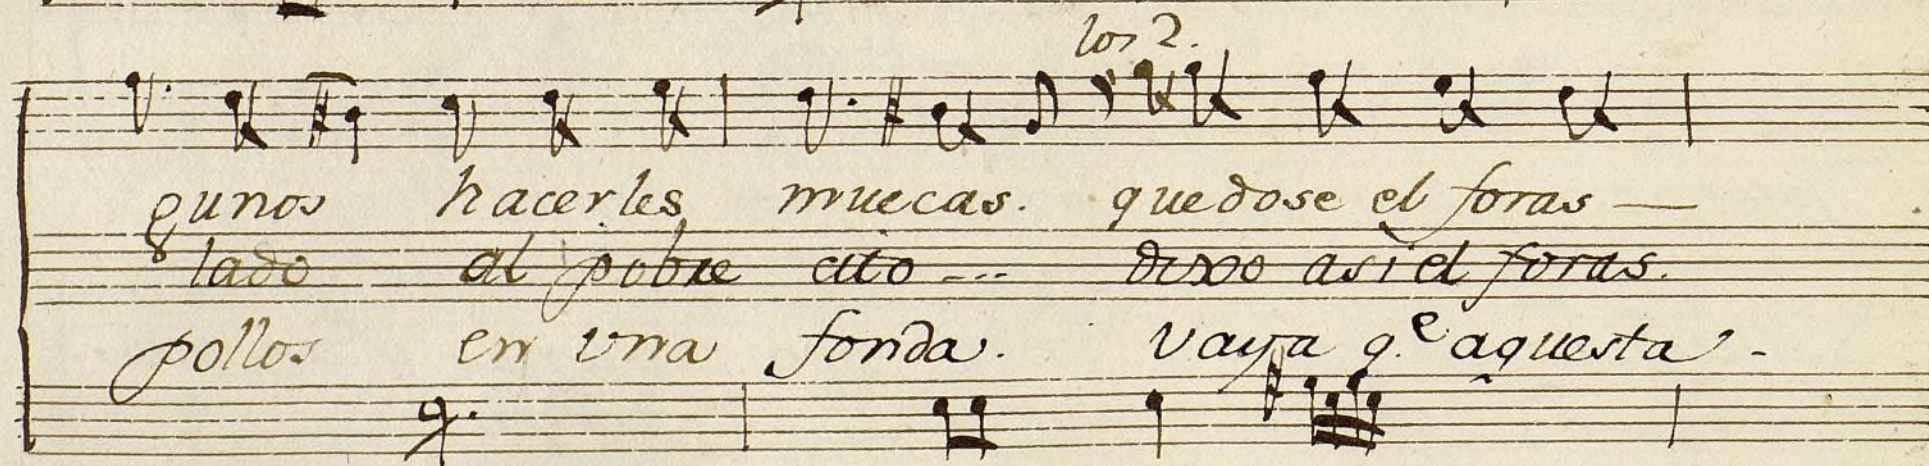 los 2.
gunos hacerles muecas. quedose el foras —
lado al pobre cito --- dixo asi el foras.
pollos en una fonda. vaya q.e aquesta -